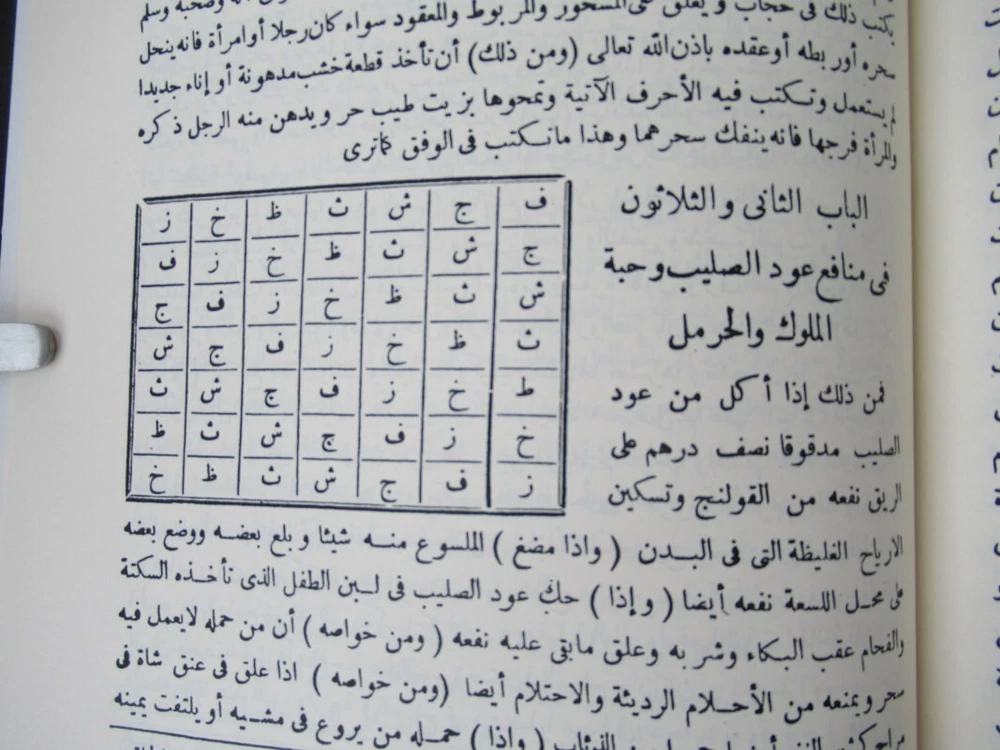 يكتب ذلك فى حجاب ويعلق على المسحور والمربوط والمعقود سواء كان رجلا أو امرأة فانه ينحل
سحره أو ربطه أو عقده باذن الله تعالى (ومن ذلك) أن تأخذ قطعة خشب مدهونة أو إناء جديدا
لم يستعمل وتكتب فيه الأحرف الآتية وتمحوها بزيت طيب حر ويدهن منه الرجل ذكره
والمرأة فرجها فانه ينفك سحرهما وهذا ما نكتب فى الوفق كما ترى
الباب الثانى والثلاثون
فى منافع عود الصليب وحبة
الملوك والحرمل
فمن ذلك إذا أكل من عود
الصليب مدقوقا نصف درهم على
الريق نفعه من القولنج وتسكين
ف ج ش ث ظ خ ز
ج ش ث ظ خ ز ف
ش ث ظ خ ز ف ج
ث ظ خ ز ف ج ش
ط خ ز ف ج ش ث
خ ز ف ج ش ث ظ
ز ف ج ش ث ظ خ
الارياح الغليظة التى فى البدن (واذا مضغ) الملسوع منه شيئا وبلع بعضه ووضع بعضه
على محل اللسعة نفعه أيضا (وإذا) حك عود الصليب فى لبن الطفل الذى تأخذه السكتة
والفحام عقب البكاء وشربه وعلق ما بقى عليه نفعه (ومن خواصه) أن من حمله لا يعمل فيه
سحر ويمنعه من الأحلام الرديئة والاحتلام أيضا (ومن خواصه) اذا علق فى عنق شاة فى
الذئاب (واذا) حمله من يروع فى مشيه أو يلتفت يمينه